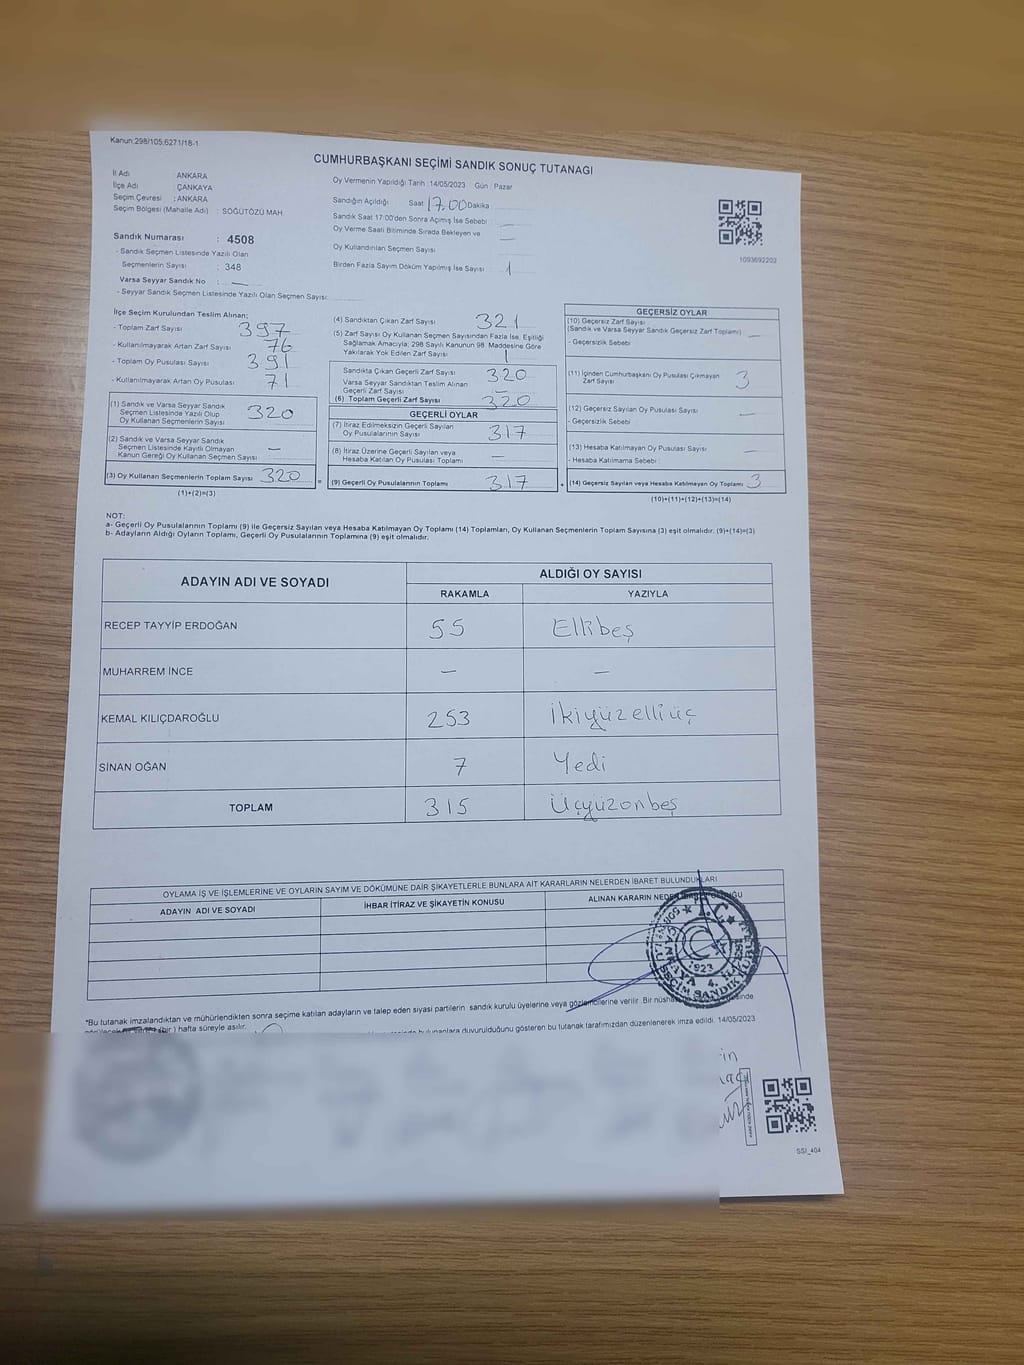 Kanun:298/105;6271/18-1
CUMHURBAŞKANI SEÇİMİ SANDIK SONUÇ TUTANAĞI
İl Adı : ANKARA
İlçe Adı : ÇANKAYA
Seçim Çevresi : ANKARA
Seçim Bölgesi (Mahalle Adı) : SÖĞÜTÖZÜ MAH.
Sandık Numarası : 4508
- Sandık Seçmen Listesinde Yazılı Olan
Seçmenlerin Sayısı : 348
Varsa Seyyar Sandık No : —
- Seyyar Sandık Seçmen Listesinde Yazılı Olan Seçmen Sayısı:
Oy Vermenin Yapıldığı Tarih :14/05/2023 Gün : Pazar
Sandığın Açıldığı Saat 17.00 Dakika
Sandık Saat 17:00'den Sonra Açılmış İse Sebebi : —
Oy Verme Saati Bitiminde Sırada Bekleyen ve —
Oy Kullandırılan Seçmen Sayısı
Birden Fazla Sayım Döküm Yapılmış İse Sayısı 1
1093692203
İlçe Seçim Kurulundan Teslim Alınan;
- Toplam Zarf Sayısı 397
- Kullanılmayarak Artan Zarf Sayısı 76
- Toplam Oy Pusulası Sayısı 391
- Kullanılmayarak Artan Oy Pusulası 71
(1) Sandık ve Varsa Seyyar Sandık
Seçmen Listesinde Yazılı Olup
Oy Kullanan Seçmenlerin Sayısı 320
(2) Sandık ve Varsa Seyyar Sandık
Seçmen Listesinde Kayıtlı Olmayan
Kanun Gereği Oy Kullanan Seçmen Sayısı —
(3) Oy Kullanan Seçmenlerin Toplam Sayısı 320
(1)+(2)=(3)
=
(4) Sandıktan Çıkan Zarf Sayısı 321
(5) Zarf Sayısı Oy Kullanan Seçmen Sayısından Fazla İse, Eşitliği
Sağlamak Amacıyla; 298 Sayılı Kanunun 98. Maddesine Göre
Yakılarak Yok Edilen Zarf Sayısı 1
Sandıkta Çıkan Geçerli Zarf Sayısı 320
Varsa Seyyar Sandıktan Teslim Alınan
Geçerli Zarf Sayısı —
(6) Toplam Geçerli Zarf Sayısı 320
GEÇERLİ OYLAR
(7) İtiraz Edilmeksizin Geçerli Sayılan
Oy Pusulalarının Sayısı 317
(8) İtiraz Üzerine Geçerli Sayılan veya
Hesaba Katılan Oy Pusulası Toplamı —
(9) Geçerli Oy Pusulalarının Toplamı 317
+
GEÇERSİZ OYLAR
(10) Geçersiz Zarf Sayısı
(Sandık ve Varsa Seyyar Sandık Geçersiz Zarf Toplamı) —
- Geçersizlik Sebebi :
(11) İçinden Cumhurbaşkanı Oy Pusulası Çıkmayan
Zarf Sayısı 3
(12) Geçersiz Sayılan Oy Pusulası Sayısı —
- Geçersizlik Sebebi :
(13) Hesaba Katılmayan Oy Pusulası Sayısı —
- Hesaba Katılmama Sebebi :
(14) Geçersiz Sayılan veya Hesaba Katılmayan Oy Toplamı 3
(10)+(11)+(12)+(13)=(14)
NOT:
a- Geçerli Oy Pusulalarının Toplamı (9) ile Geçersiz Sayılan veya Hesaba Katılmayan Oy Toplamı (14) Toplamları, Oy Kullanan Seçmenlerin Toplam Sayısına (3) eşit olmalıdır. (9)+(14)=(3)
b- Adayların Aldığı Oyların Toplamı, Geçerli Oy Pusulalarının Toplamına (9) eşit olmalıdır.
ADAYIN ADI VE SOYADI
ALDIĞI OY SAYISI
RAKAMLA YAZIYLA
RECEP TAYYİP ERDOĞAN 55 Ellibeş
MUHARREM İNCE — —
KEMAL KILIÇDAROĞLU 253 İkiyüzelliüç
SİNAN OĞAN 7 Yedi
TOPLAM 315 Üçyüzonbeş
OYLAMA İŞ VE İŞLEMLERİNE VE OYLARIN SAYIM VE DÖKÜMÜNE DAİR ŞİKAYETLERLE BUNLARA AİT KARARLARIN NELERDEN İBARET BULUNDUKLARI
ADAYIN ADI VE SOYADI İHBAR İTİRAZ VE ŞİKAYETİN KONUSU ALINAN KARARIN
T.C.
ÇANKAYA 4. İLÇESİ
1923
SEÇİM SANDIK KURULU
"Bu tutanak imzalandıktan ve mühürlendikten sonra seçime katılan adayların ve talep eden siyasi partilerin sandık kurulu üyelerine veya gözlemcilerine verilir. Bir
hafta süreyle asılır.
duyurulduğunu gösteren bu tutanak tarafımızdan düzenlenerek imza edildi. 14/05/2023
SSI_404